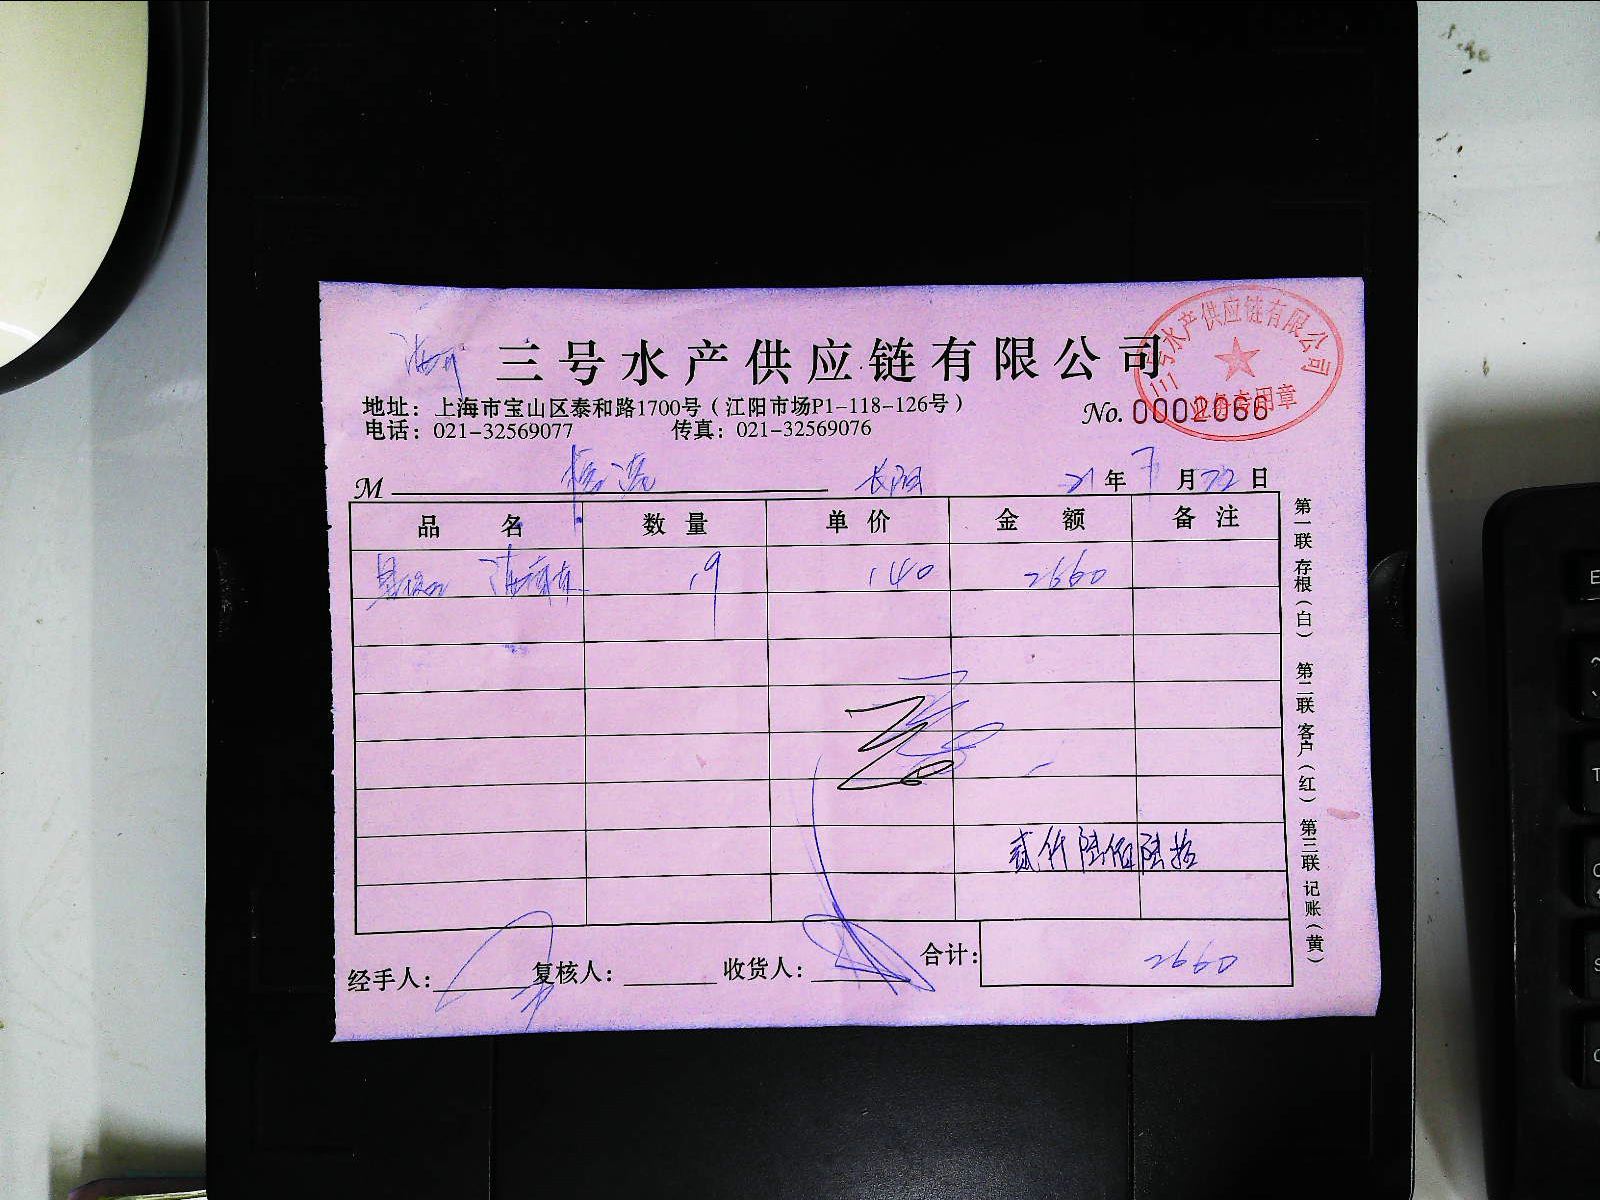 三号水产供应链有限公司
三号水产供应链有限公司
业务专用章
地址：上海市宝山区泰和路1700号（江阳市场P1-118-126号）
No. 0002066
电话：021-32569077 传真：021-32569076
M 长阳 21年 月22日
品名 数量 单价 金额 备注
19 140 2660
贰仟陆佰陆拾
经手人： 复核人： 收货人： 合计： 2660
第一联 存根（白） 第二联 客户（红） 第三联 记账（黄）